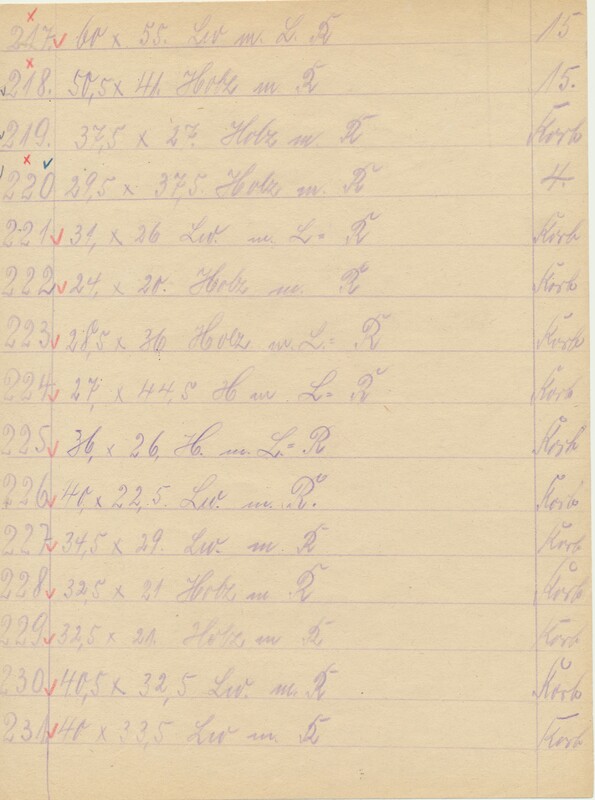 217. 60 x 55. Lw m. L. R 15
218. 50,5 x 41. Holz m R 15.
219. 37,5 x 27. Holz m. R Korb
220 29,5 x 37,5. Holz m. R 4.
221 31, x 26 Lw. m. L= R Korb
222 24, x 20. Holz m. R Korb
223 28,5 x 36 Holz m. L= R Korb
224 27, x 44,5 H m. L= R Korb
225 36, x 26, H. m. L= R Korb
226 40, x 22,5. Lw. m. R. Korb
227 34,5 x 29. Lw. m. R Korb
228 32,5 x 21 Holz m. R Korb
229 32,5 x 21. Holz m R Korb
230 40,5 x 32,5 Lw. m. R Korb
231 40 x 33,5 Lw m. R Korb